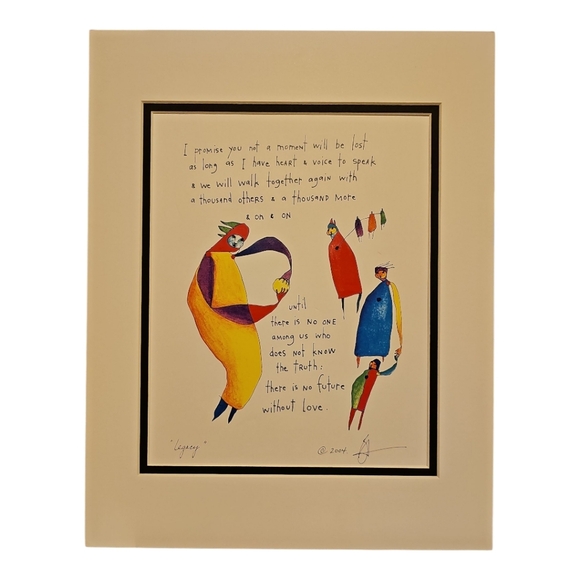 I promise you not a moment will be lost
as long as I have heart & voice to speak
& we will walk together again with
a thousand others & a thousand more
& on & on
until
there is no one
among us who
does not know
the truth:
there is no future
without love.
"Legacy"
© 2004